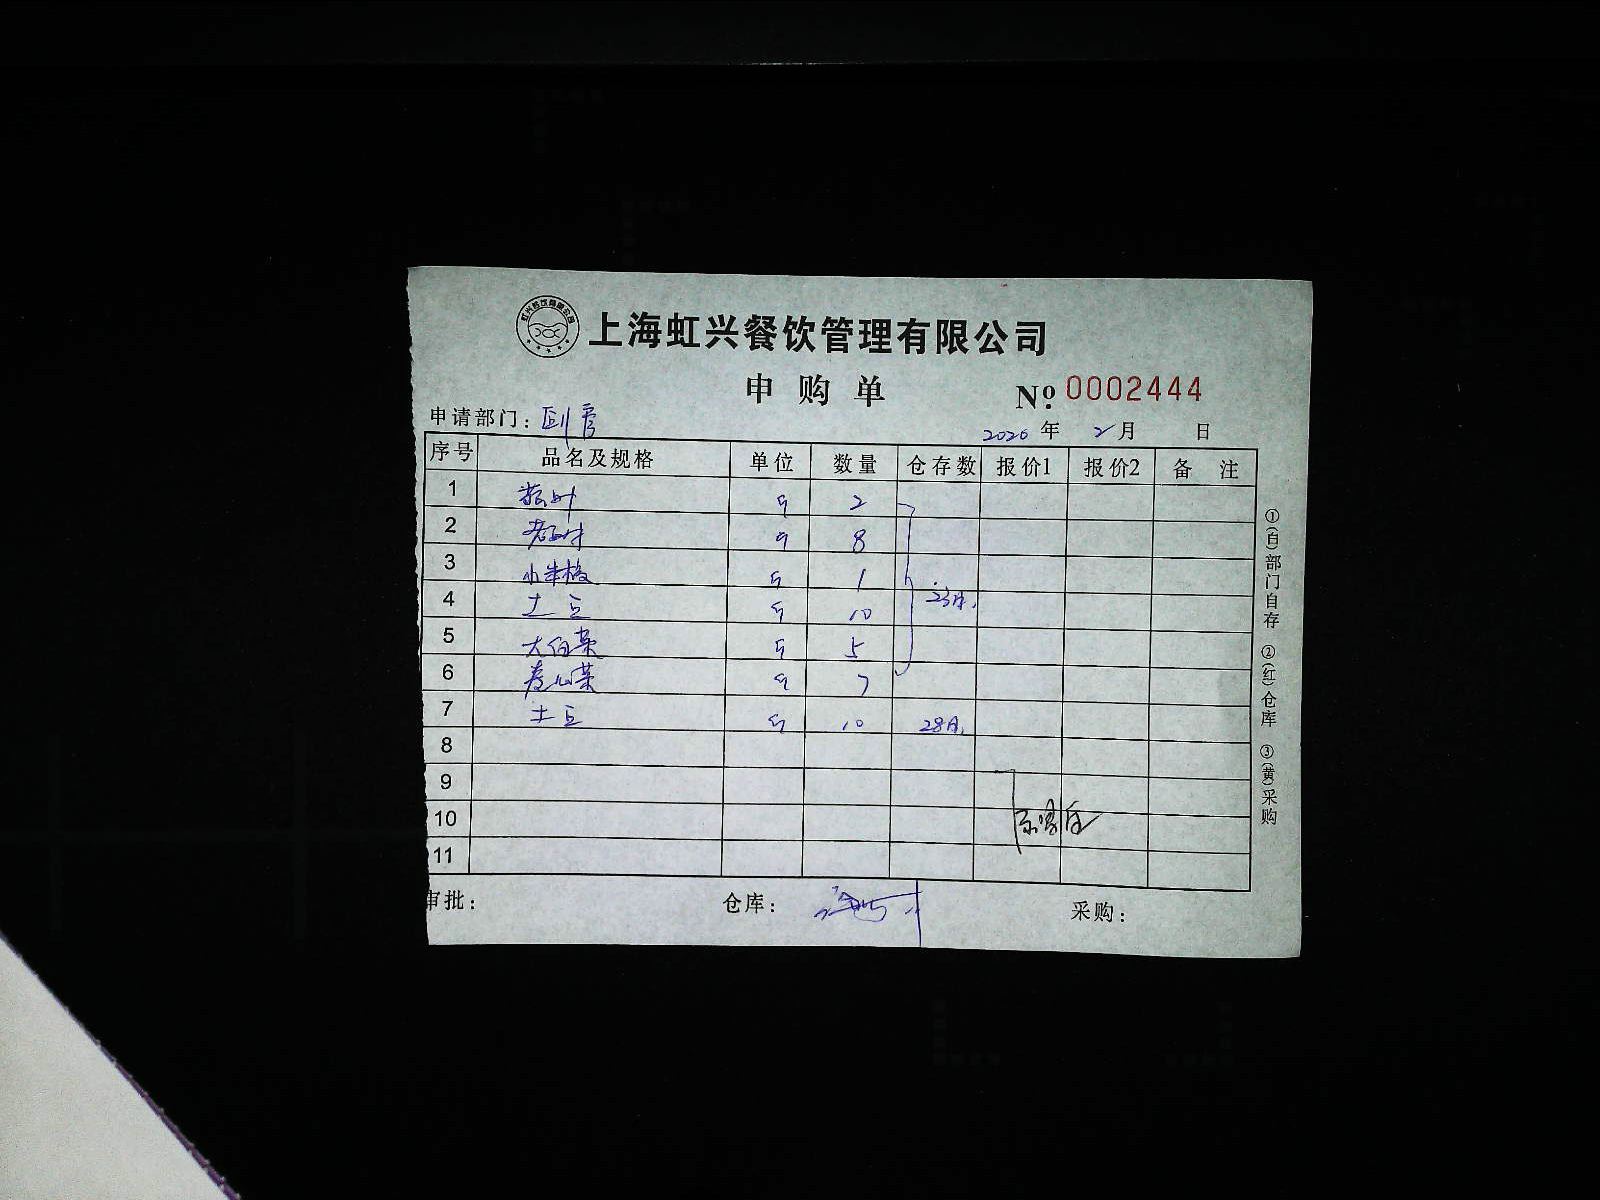 上海虹兴餐饮管理有限公司
申购单 No. 0002444
申请部门:
2026 年 2 月 日
序号 品名及规格 单位 数量 仓存数 报价1 报价2 备注
1 斤 2
2 斤 8
3 小米椒 斤 1
4 土豆 斤 10 23日.
5 大白菜 斤 5
6 卷心菜 斤 7
7 土豆 斤 10 28日.
8
9
10
11
审批: 仓库: 采购:
①(白)部门自存 ②(红)仓库 ③(黄)采购